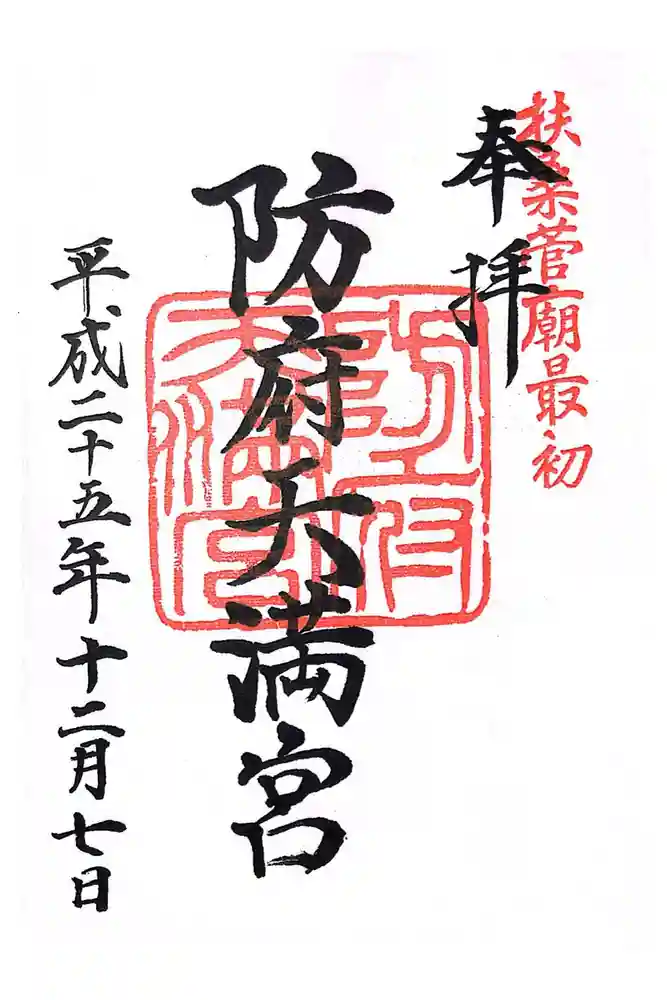 扶桑菅廟最初
奉拝
防府天満宮
防府
天満宮
平成二十五年十二月七日